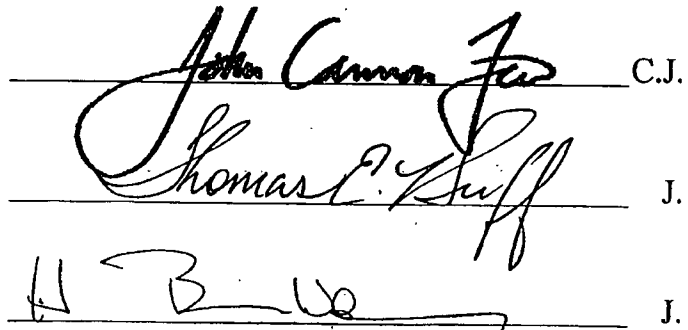 John Cannon Few C.J.
Thomas E. Huff J.
H. J.